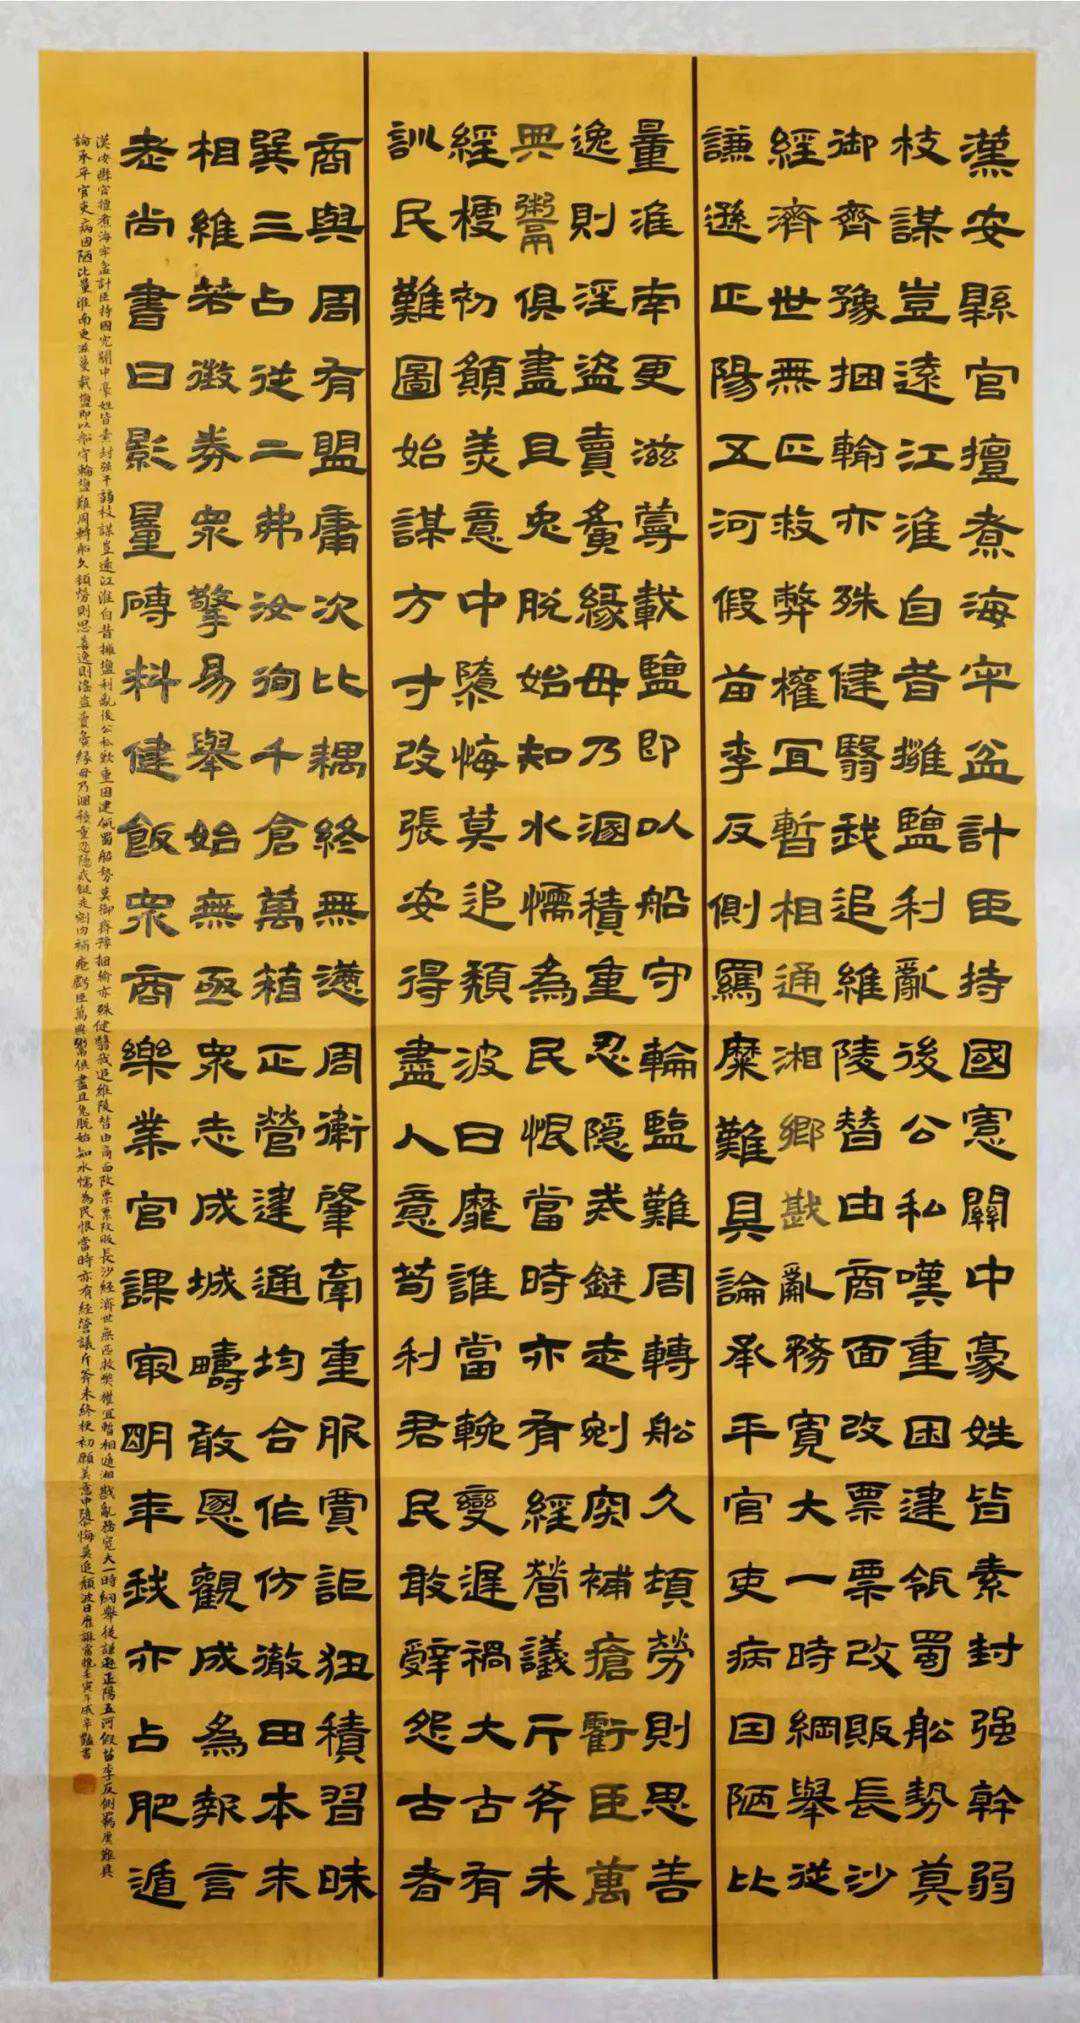 漢安縣官擅煮海牢盆計臣持國憲關中豪姓皆素封强幹弱
枝謀豈遠江淮自昔擁鹽利亂後公私嘆重困建瓴蜀船勢莫
御齊豫捆輸亦殊健翳我追維陵替由商面改票票改販長沙
經濟世無匹救弊權宜暫相通湘鄉戡亂務寬大一時綱舉從
謙遜正陽五河假苗李反側羈縻難具論承平官吏病因陋比
量淮南更滋蔓載鹽即以船守輪鹽難周轉船久頓勞則思善
逸則淫盜賣夤緣毋乃溷積重忍隱忒鋌走剜宍補瘡虧臣萬
與粥俱盡且兔脫始知水懦為民恨當時亦有經營議斤斧未
經梗初願美意中隳悔莫追頹波日靡誰當輓變遲禍大古有
訓民難圖始謀方寸改張安得盡人意苟利君民敢辭怨古者
商與周有盟庸次比耦終無懣周衛肇牽重服賈詎狃積習昧
巽三占從二弗汝徇千倉萬箱正營建通均合作仿徹田本末
相維若徵券眾擎易舉始無亟眾志成城疇敢慁觀成為報言
老尚書日影量磚料健飯眾商樂業官課最明年我亦占肥遁
漢安縣官擅煮海牢盆計臣持國憲關中豪姓皆素封强干弱枝謀豈遠江淮自昔擁鹽利亂後公私歎重困建瓴蜀船勢莫御齊豫捆輸亦殊健翳我追維陵替由商面改票票改販長沙經濟世無匹救弊權宜暫相通湘戡亂務寬大一時綱舉從謙遜正陽五河假苗李反側羈縻難具
論承平官吏病因陋比量淮南更滋蔓載鹽即以船守輪鹽難周轉船久頓勞則思善逸則淫盜賣夤緣毋乃溷積重忍隱忒鋌走剜肉補瘡虧臣萬與粥俱盡且兔脫始知水懦為民恨當時亦有經營議斤斧未終梗初願美意中隳悔莫追頹波日靡誰當輓壬寅年書